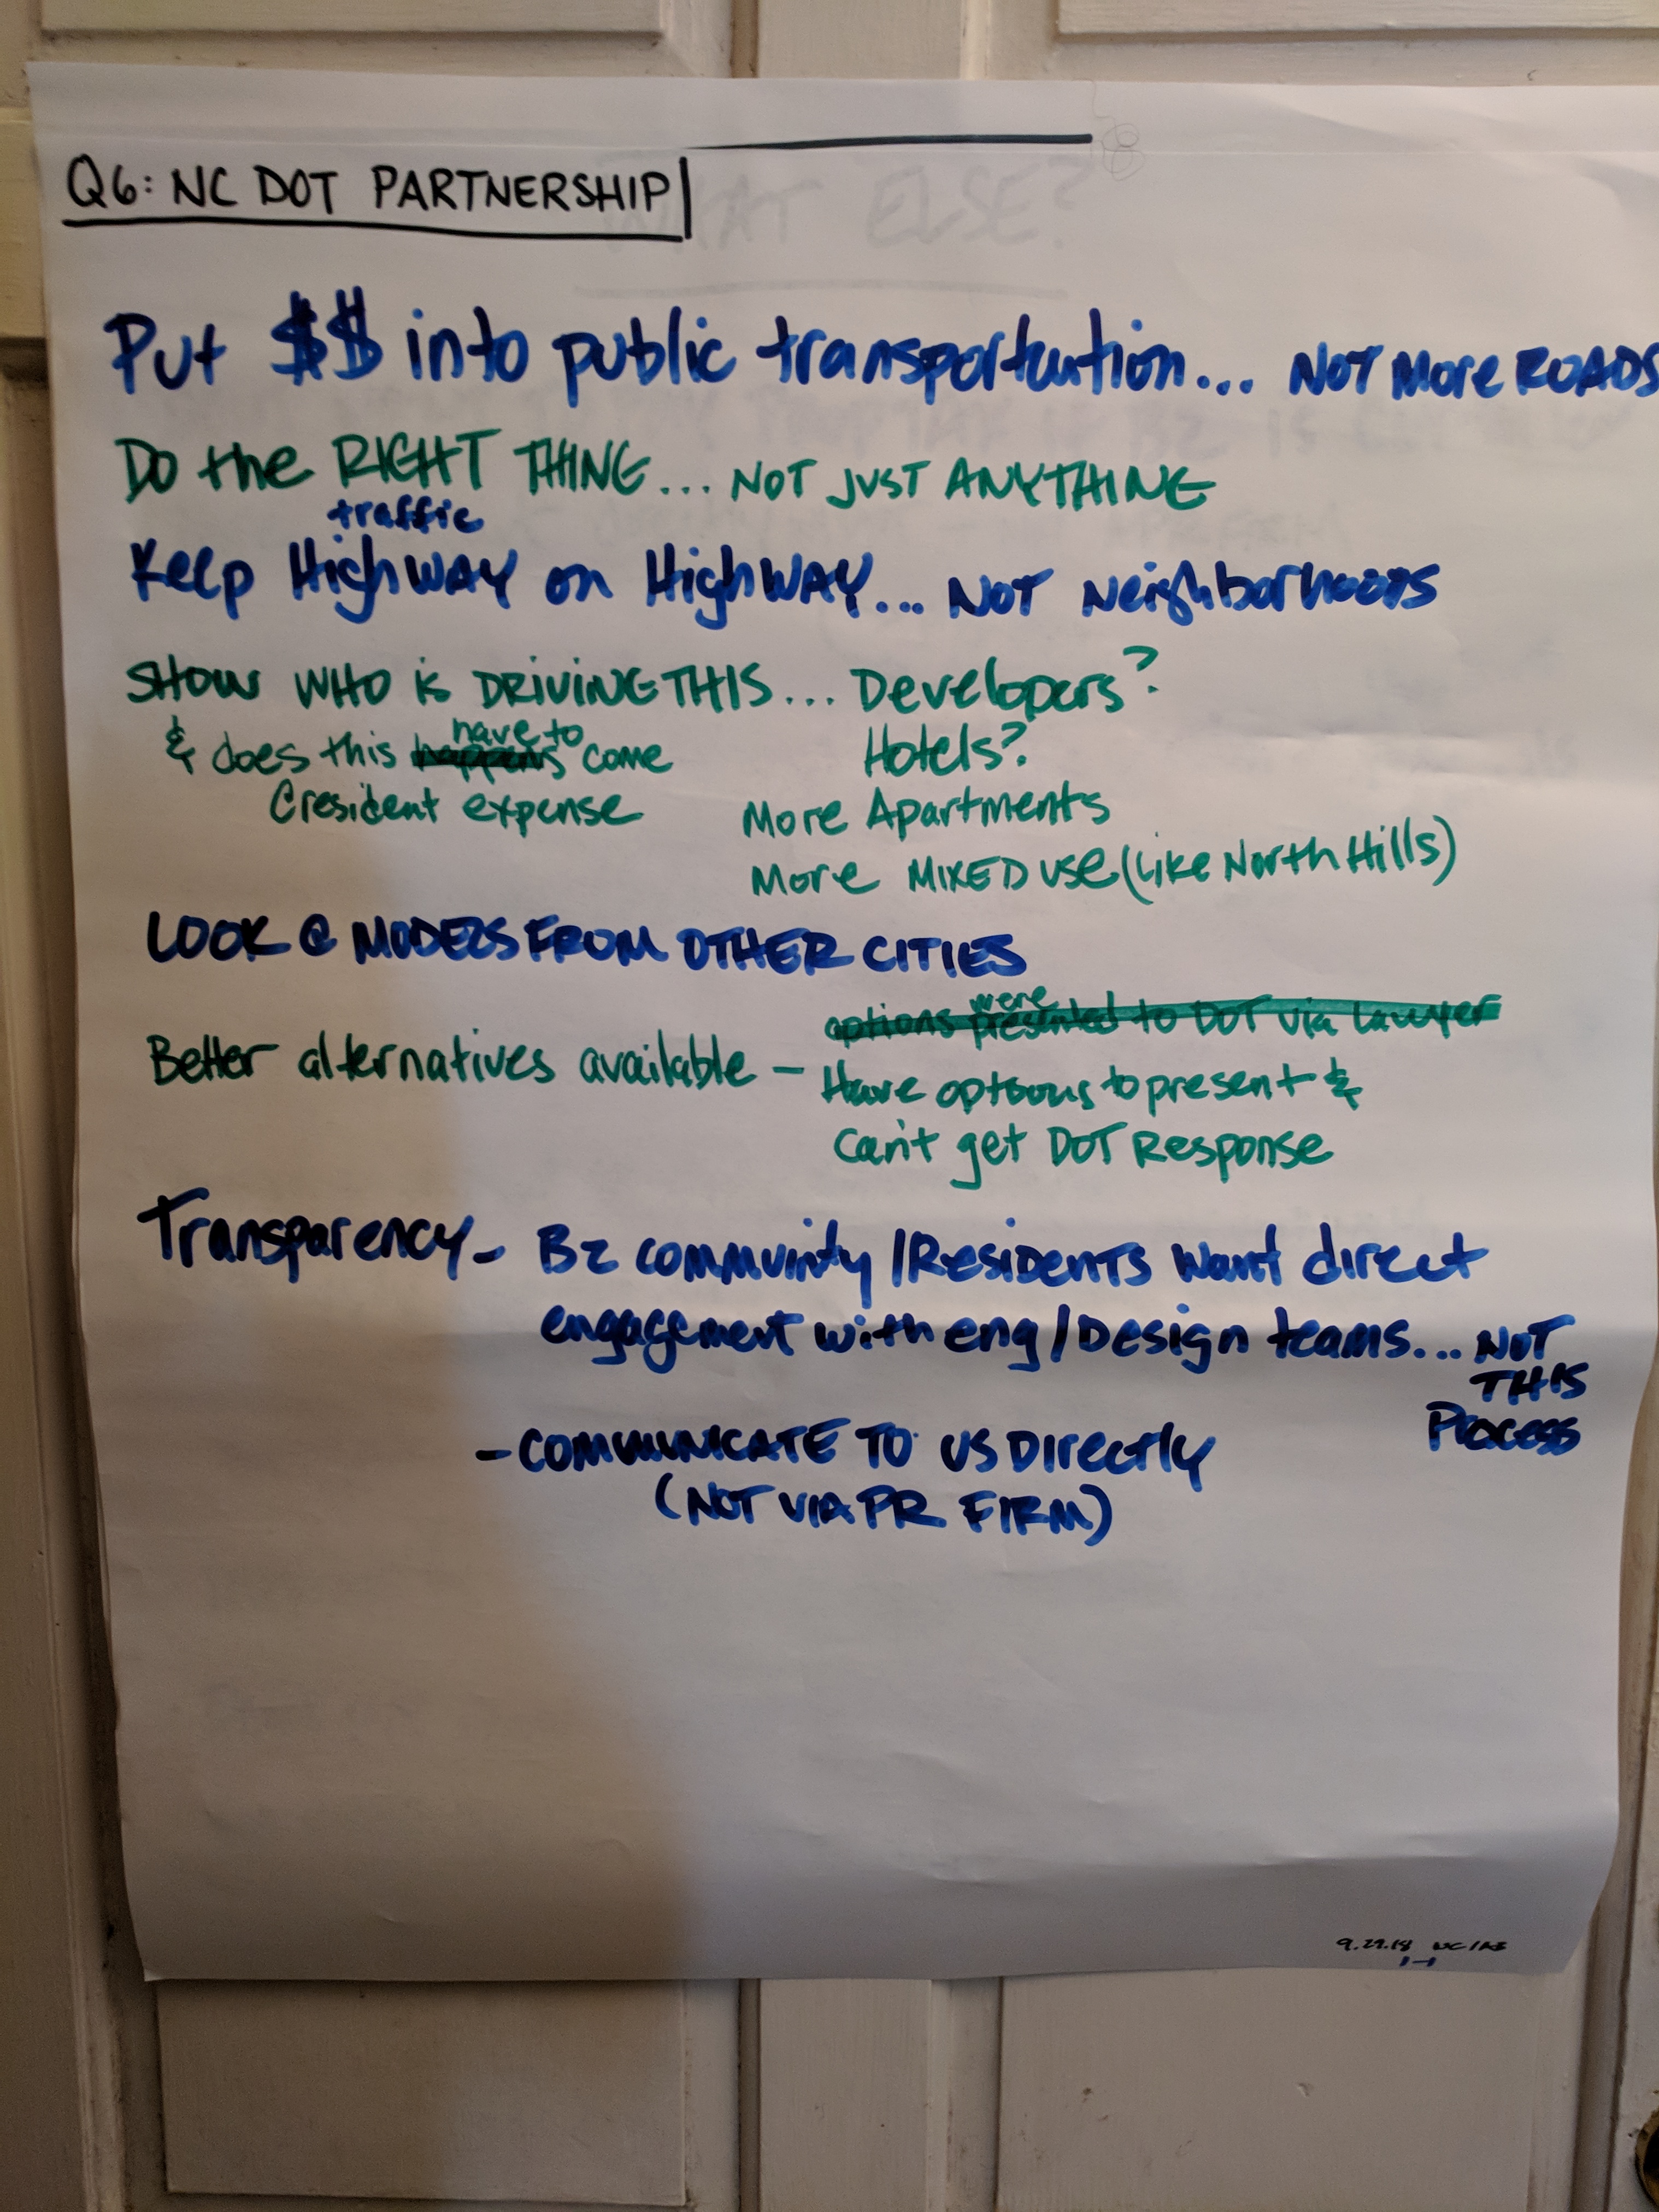 Q6: NC DOT PARTNERSHIP
WHAT ELSE?
Put $$ into public transportation... NOT MORE ROADS
DO the RIGHT THING... NOT JUST ANYTHING
traffic
Keep HighWAY on HighWAY... NOT Neighborhoods
SHOW WHO is DRIVING THIS... Developers?
& does this happens have to come
Hotels?
@resident expense
More Apartments
More MIXED USE (Like North Hills)
LOOK @ MODELS FROM OTHER CITIES
options were presented to DOT via lawyer
Better alternatives available - Have options to present &
Can't get DOT Response
Transparency - Bz community / Residents want direct
engagement with eng / Design teams... NOT
THIS
Process
- COMMUNICATE TO US Directly
(NOT VIA PR FIRM)